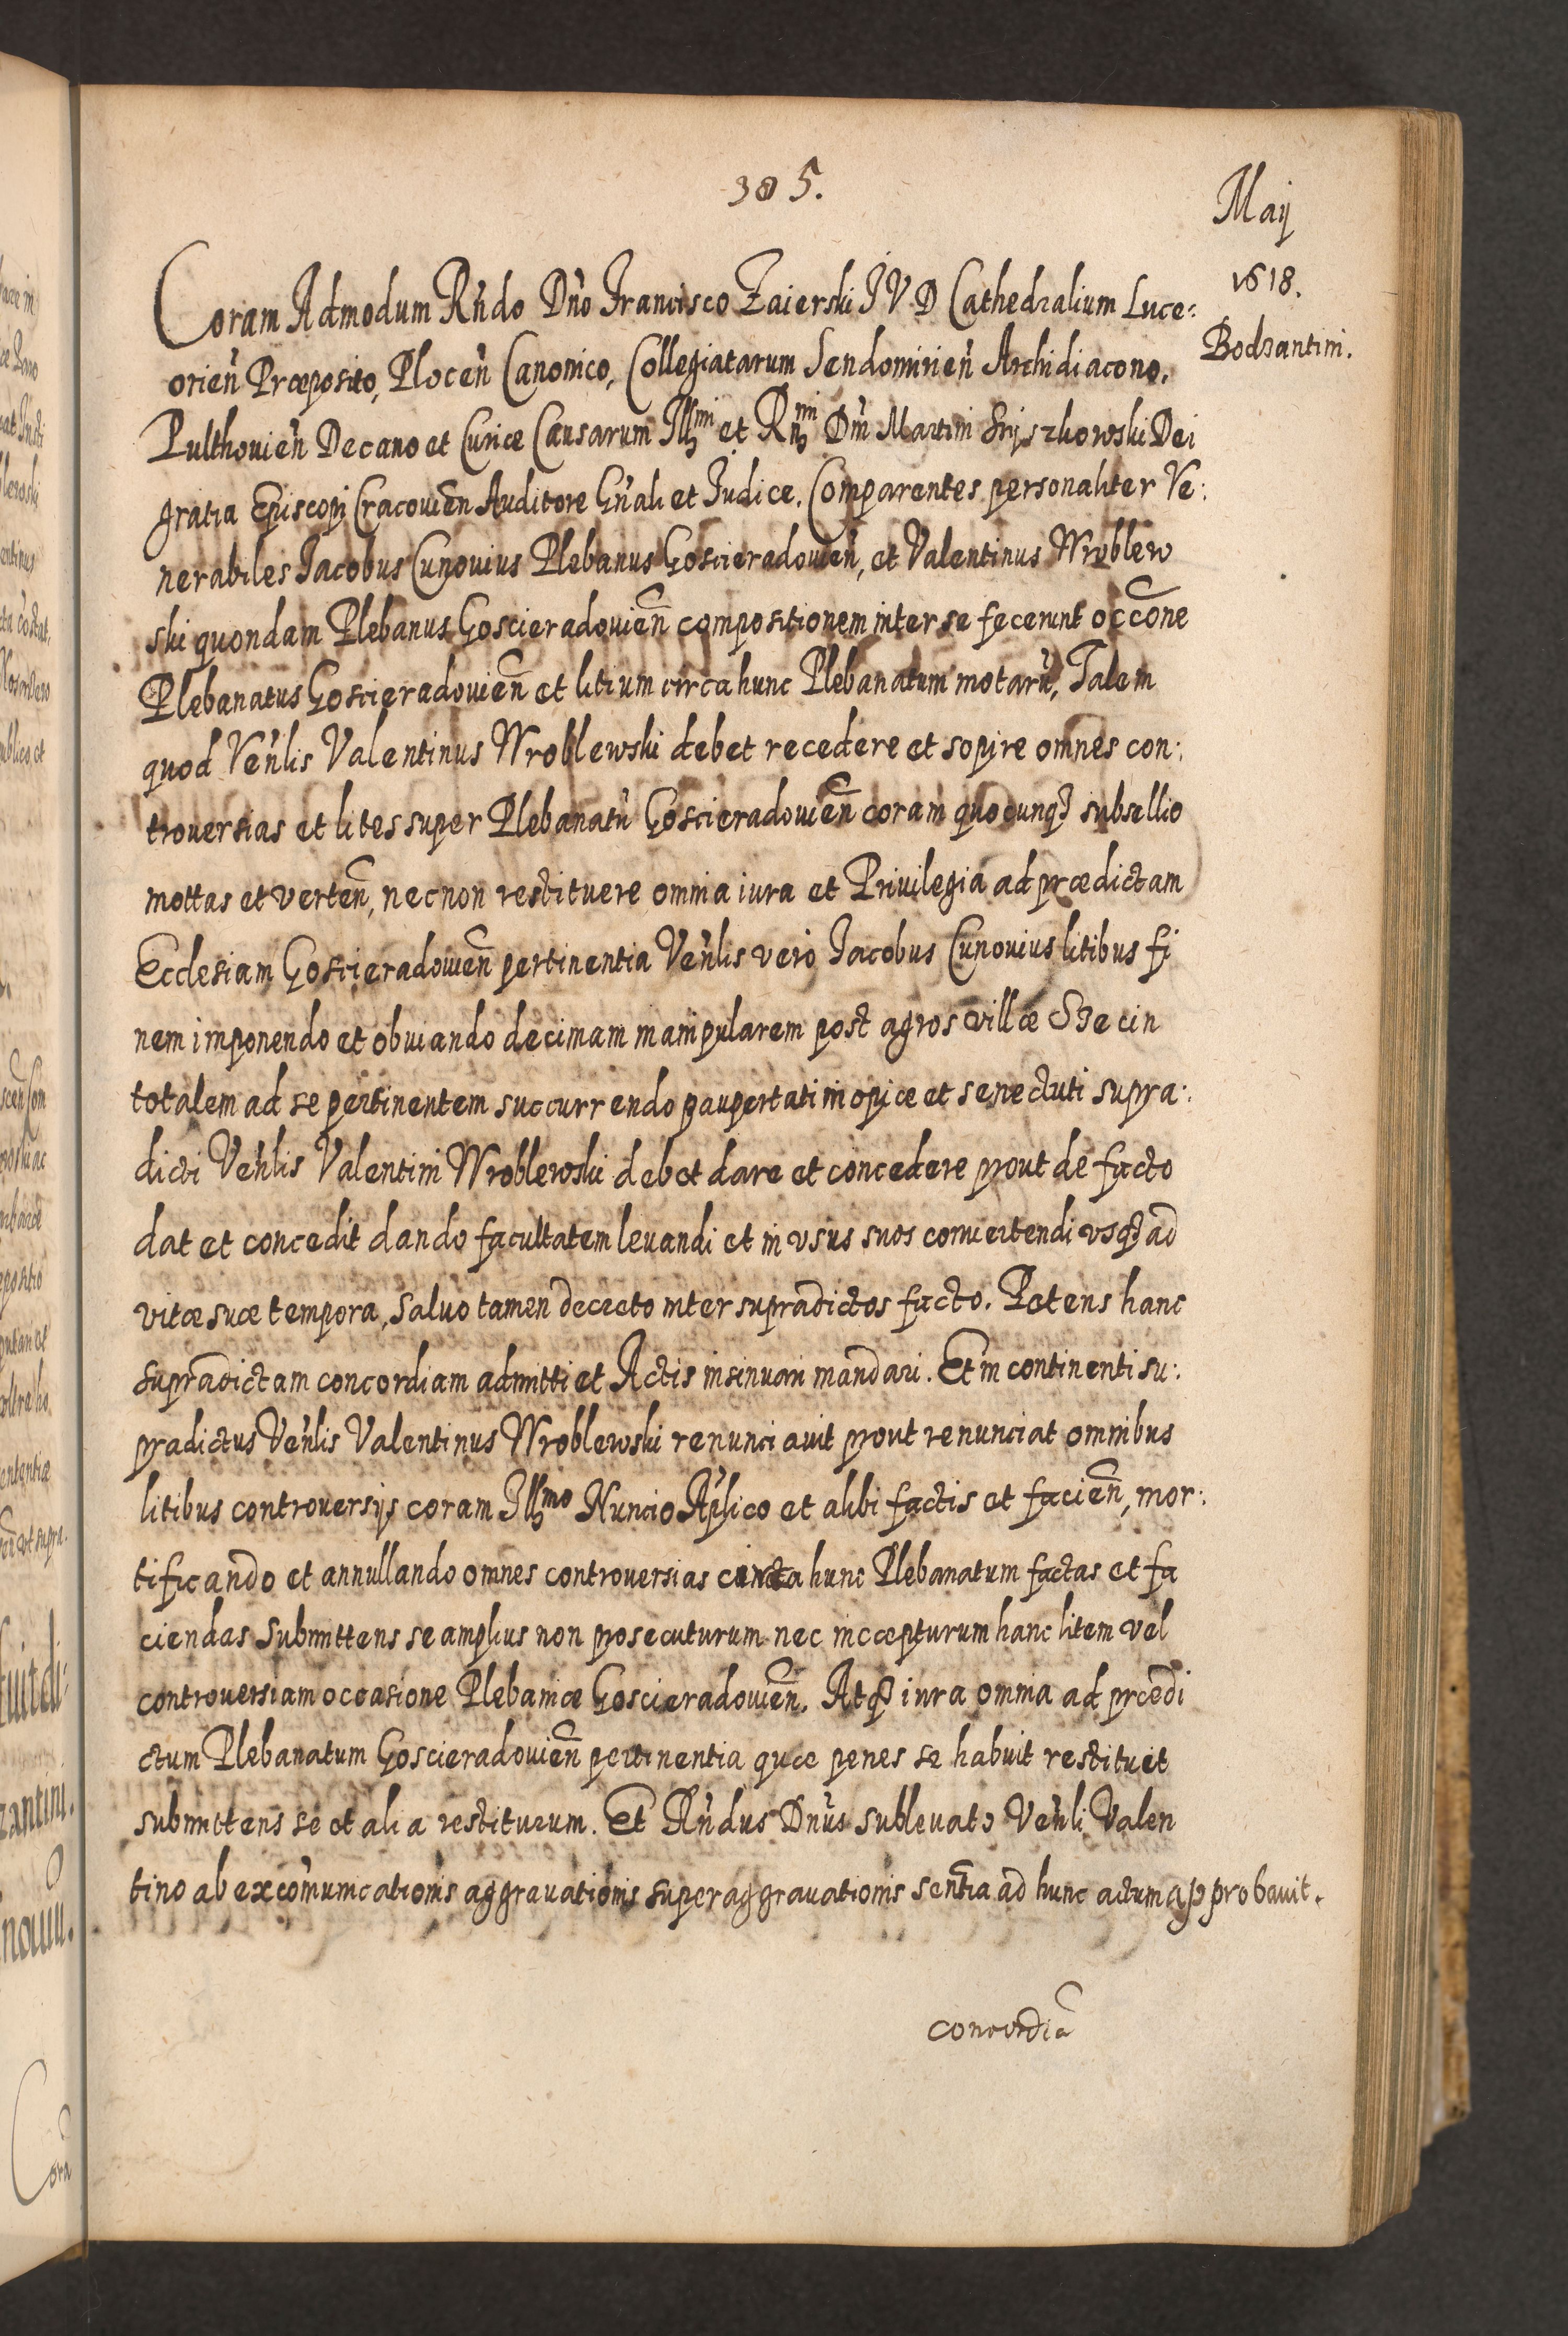 305.
Maij
1618.
Bodzantini.
Coram Admodum Rńdo Dńo Francisco Zaierski J V D Cathedralium Luce:
orień Præposito, Ploceń Canonico, Collegiatarum Sendomirień Archidiacono,
Pulthovień Decano et Curiæ Causarum Illmi et Rmi Dńi Martini Szyszkowski Dei
gratia Episcopi Cracovień Auditore Gńali et Judice. Comparentes personaliter Ve:
nerabiles Jacobus Cunovius Plebanus Goscieradovień, et Valentinus Wroblew
ski quondam Plebanus Goscieradovień compositionem inter se fecerunt occõne
Plebanatus Goscieradovień et litium circa hunc Plebanatum motarũ, Talem
quod Veńlis Valentinus Wroblewski debet recedere et sopire omnes con:
troversias et lites super Plebanatũ Goscieradovień coram quocunq3 subsellio
mottas et verteń, necnon restituere omnia iura et Privilegia ad prædictam
Ecclesiam Goscieradovień pertinentia Veńlis vero Jacobus Cunovius litibus fi
nem imponendo et obviando decimam manipularem post agros villæ Szecin
totalem ad se pertinentem succurrendo paupertati inopiæ et senectuti supra:
dicti Veńlis Valentini Wroblewski debet dare et concedere prout de facto
dat et concedit dando facultatem levandi et in usus suos convertendi vsq3 ad
vitæ suæ tempora, salvo tamen decreto inter supradictos facto. Petens hanc
supradictam concordiam admitti et Actis insinuari mandari. Et in continenti su:
pradictus Veńlis Valentinus Wroblewski renunciavit prout renunciat omnibus
litibus controversijs coram Illmo Nuncio Aplico et alibi factis et facień, mor:
tificando et annullando omnes controversias circa hunc Plebanatum factas et fa
ciendas submittens se amplius non prosecuturum nec incæpturum hanc litem vel
controversiam occasione Plebaniæ Goscieradovień. Atq3 iura omnia ad prædi
ctum Plebanatum Goscieradovień pertinentia quæ penes se habuit restituit
submittens se et alia restiturum. Et Rńdus Dńus sublevato Veńli Valen
tino ab excõmunicationis aggravationis superaggravationis sentĩa ad hunc actum approbavit.
concordiã